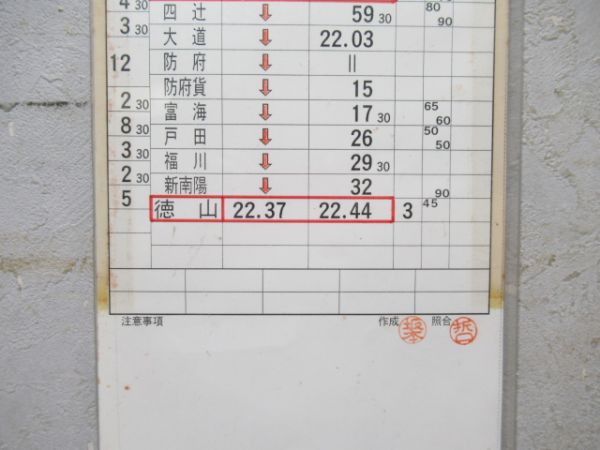 4 30 80
四辻 ↓ 59 30 90
3 30
大道 ↓ 22.03
12 防府 ||
防府貨 ↓ 15
2 30
富海 ↓ 17 30 65 60
8 30
戸田 ↓ 26 50 50
3 30
福川 ↓ 29 30
2 30
新南陽 ↓ 32 90
5
徳山 22.37 22.44 3 45
注意事項 作成 照合